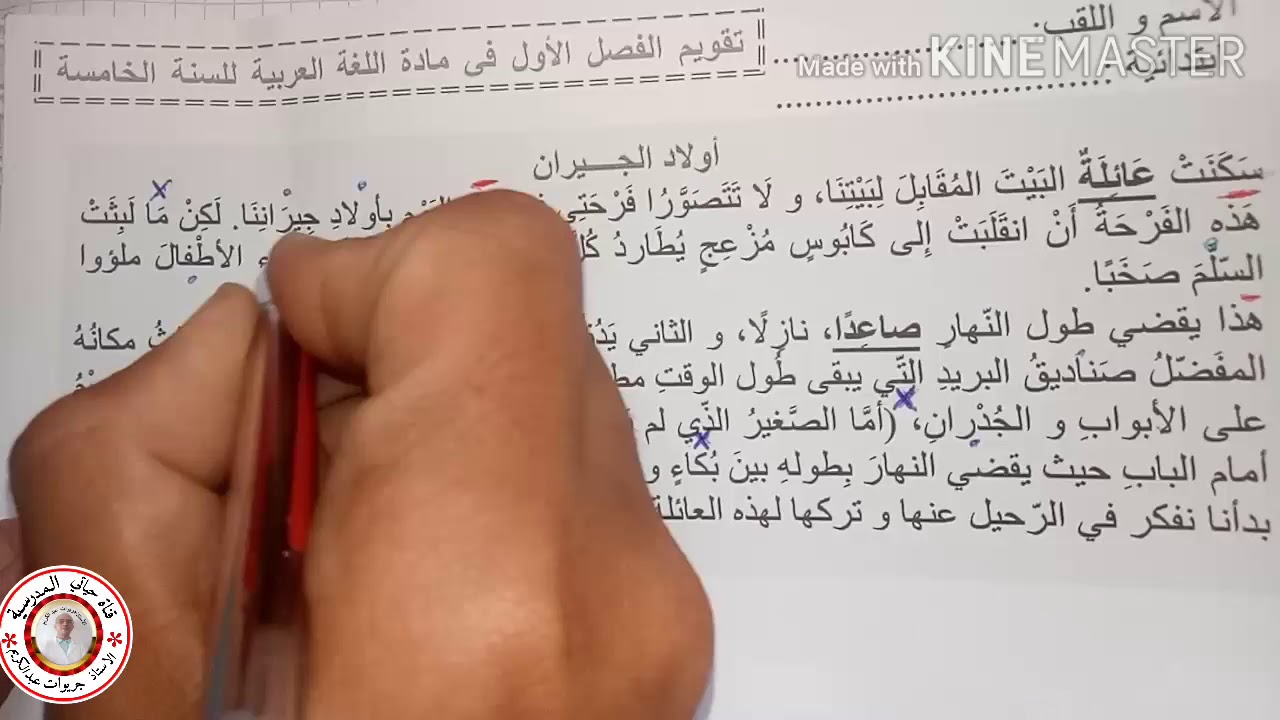 الاسم و اللقب:
Made with KINEMASTER
تقويم الفصل الأول في مادة اللغة العربية للسنة الخامسة
أولاد الجـــيران
سَكَنَتْ عَائِلَةٌ البَيْتَ المُقَابِلَ لِبَيْتِنَا، و لَا تَتَصَوَّرُا فَرْحَتِي بِأولَادِ جِيرَانِنَا. لَكِنْ مَا لَبِثَتْ
هَذه الفَرْحَةُ أَنْ انقَلَبَتْ إِلى كَابُوسٍ مُزْعِجٍ يُطَارِدُ الأطْفالَ ملؤوا
السّلّمَ صَخَبًا.
هذا يقضي طول النّهارِ صاعِدًا، نازِلًا، و الثاني مكانُهُ
المفَضّلُ صَنَاديقُ البريدِ التّي يبقى طُول الوقتِ
على الأبوابِ و الجُدْرانِ، (أمَّا الصَّغيرُ الذّي لم
أمام البابِ حيث يقضي النهارَ بِطولهِ بينَ بُكَاءٍ و
بدأنا نفكر في الرّحيل عنها و تركها لهذه العائلة
قناة حياتي المدرسية
الاستاذ جريوات عبدالكريم